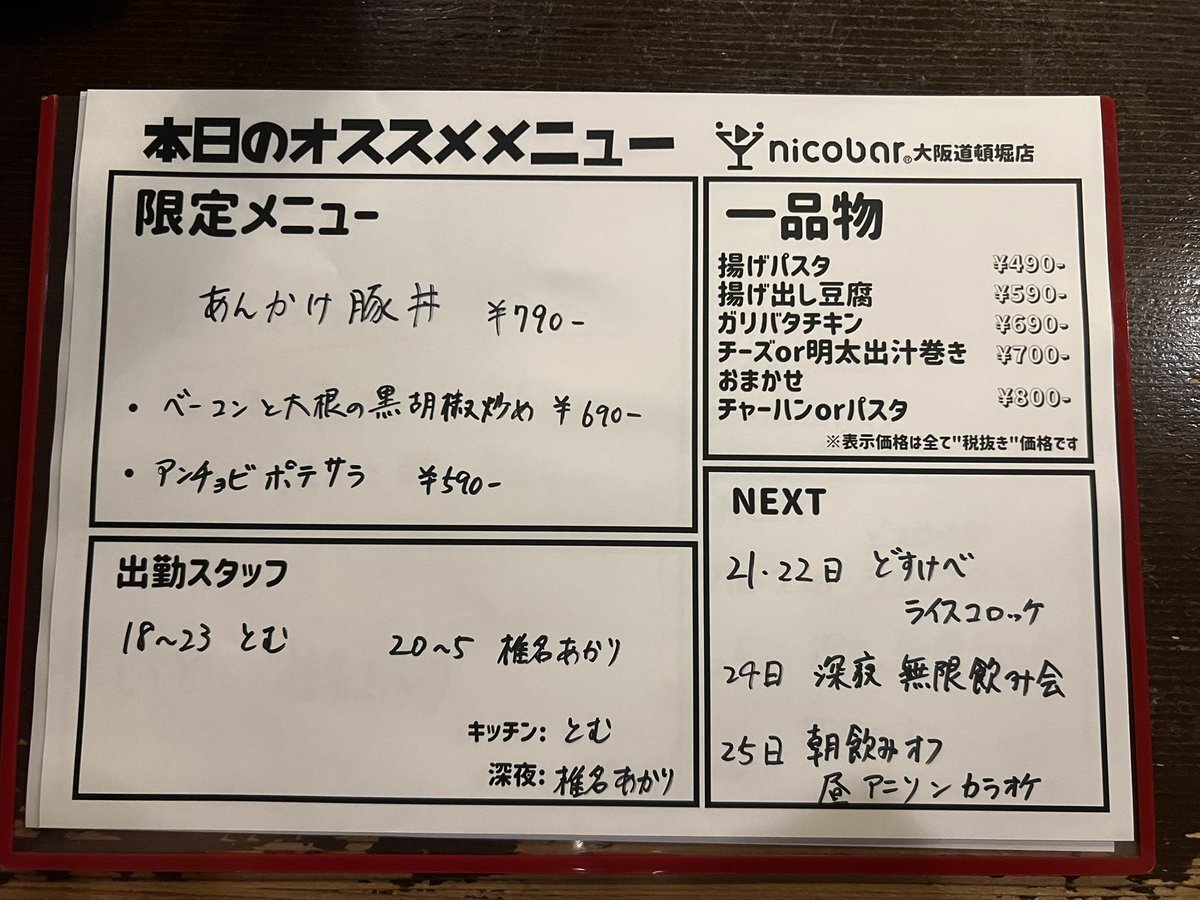 本日のオススメメニュー
nicobar® 大阪道頓堀店
限定メニュー
あんかけ豚丼 ¥790-
・ベーコンと大根の黒胡椒炒め ¥690-
・アンチョビポテサラ ¥590-
一品物
揚げパスタ ¥490-
揚げ出し豆腐 ¥590-
ガリバタチキン ¥690-
チーズor明太出汁巻き ¥700-
おまかせ
チャーハンorパスタ ¥800-
※表示価格は全て"税抜き"価格です
出勤スタッフ
18~23 とむ 20~5 椎名あかり
キッチン: とむ
深夜: 椎名あかり
NEXT
21・22日 どすけべ
ライスコロッケ
24日 深夜 無限飲み会
25日 朝飲みオフ
昼アニソンカラオケ